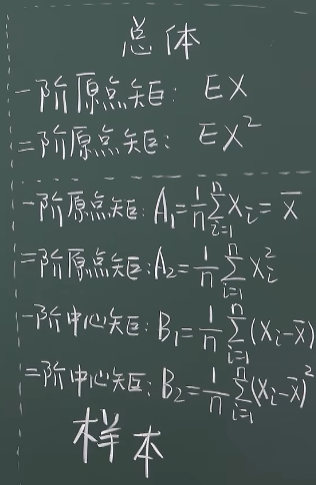 总体
一阶原点矩: EX
二阶原点矩: EX²
一阶原点矩: A₁=1/n ∑ᵢ₌₁ⁿ Xᵢ = X̄
二阶原点矩: A₂=1/n ∑ᵢ₌₁ⁿ Xᵢ²
一阶中心矩: B₁=1/n ∑ᵢ₌₁ⁿ (Xᵢ-X̄)
二阶中心矩: B₂=1/n ∑ᵢ₌₁ⁿ (Xᵢ-X̄)²
样本